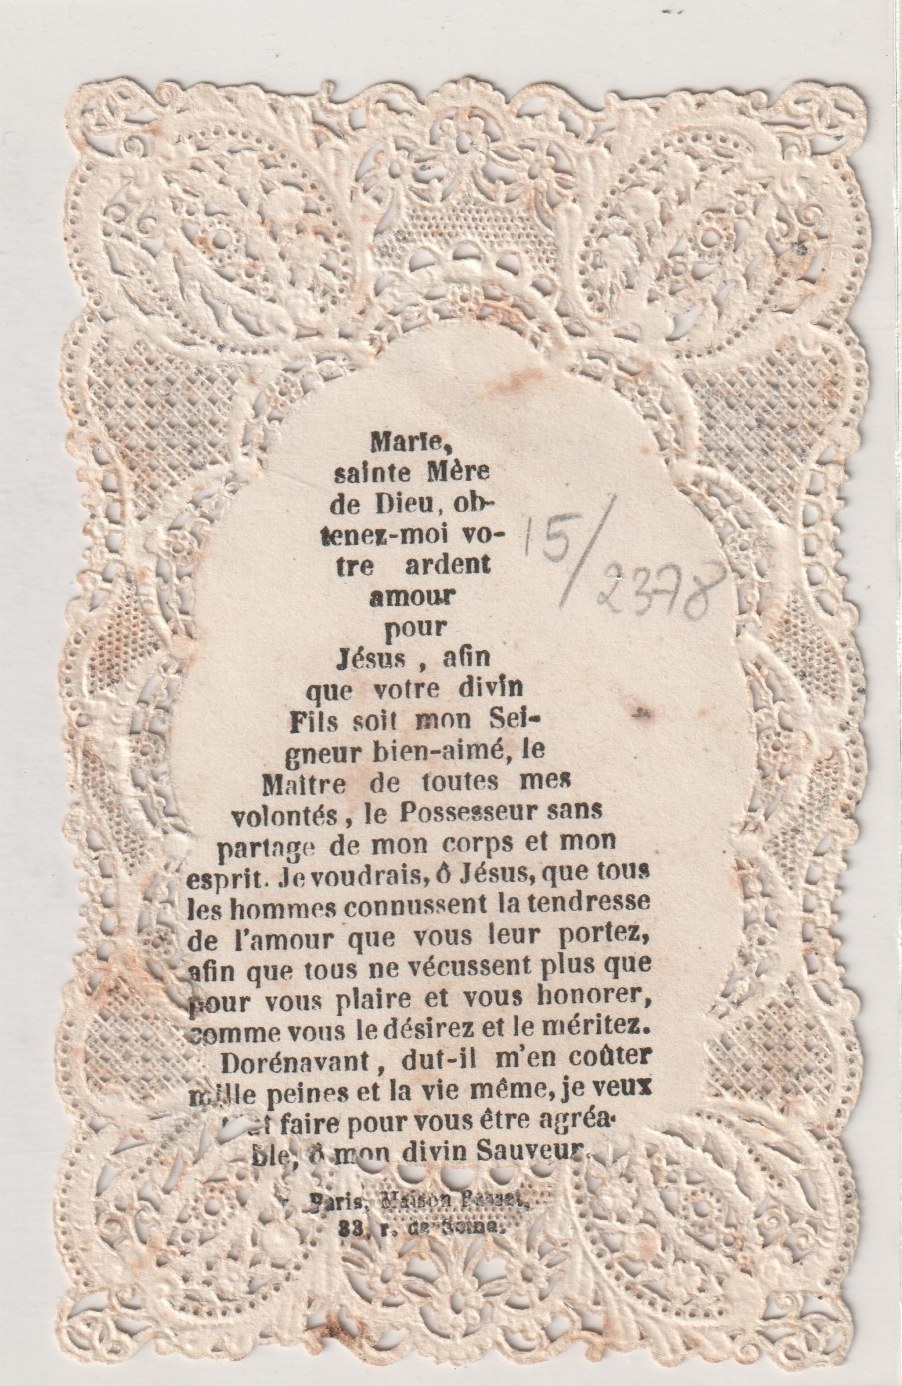 Marie,
sainte Mère
de Dieu, ob-
tenez-moi vo-
tre ardent
amour
pour
Jésus, afin
que votre divin
Fils soit mon Sei-
gneur bien-aimé, le
Maître de toutes mes
volontés, le Possesseur sans
partage de mon corps et mon
esprit. Je voudrais, ô Jésus, que tous
les hommes connussent la tendresse
de l'amour que vous leur portez,
afin que tous ne vécussent plus que
pour vous plaire et vous honorer,
comme vous le désirez et le méritez.
Dorénavant, dut-il m'en coûter
mille peines et la vie même, je veux
faire pour vous être agréa-
ble, ô mon divin Sauveur.
Paris, Maison Basset,
33, r. de Seine.
15/
2378